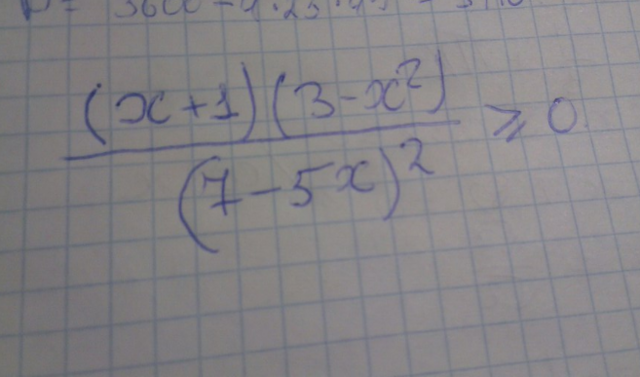 (x+1)(3-x²)
/ (7-5x)² ≥ 0